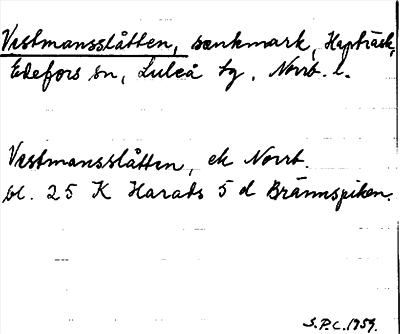 Vestmansslåtten, sankmark, Hapträsk,
Edefors sn, Luleå tg, Norrb. l.
Vestmansslåtten, ek Norrb.
bl. 25 K Harads 5 d Brännspiken.
S.P.C. 1959.